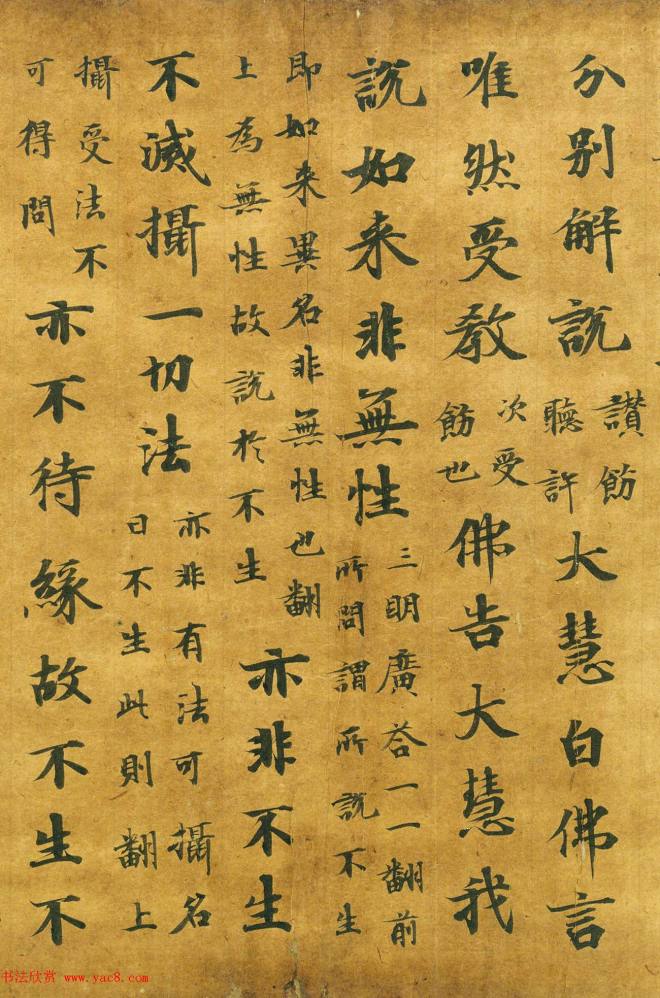 分別解說讃飭聽許大慧白佛言
唯然受教次受飭也佛告大慧我
說如来非無性三明廣荅一一翻前所問謂所說不生
即如来異名非無性也翻上為無性故說於不生亦非不生
不滅攝一切法亦非有法可攝名曰不生此則翻上
攝受法不可得問亦不待緣故不生不
书法欣赏 www.yac8.com